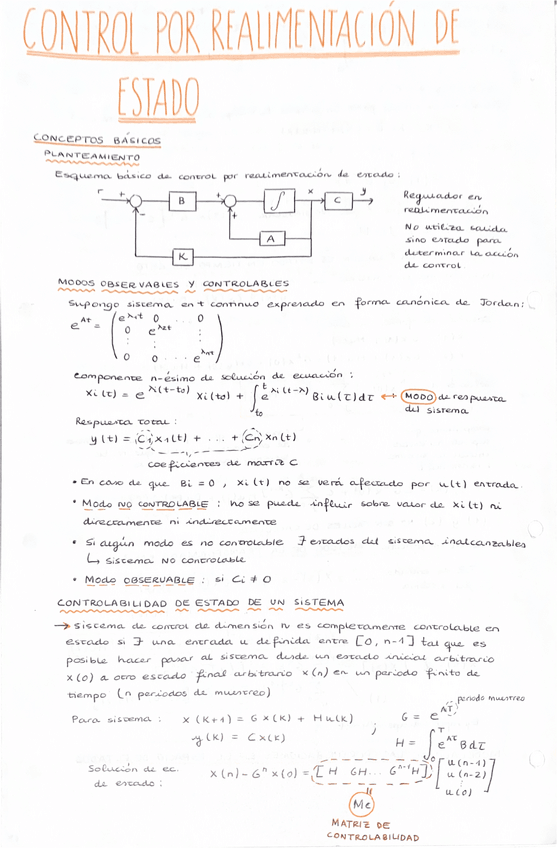 CONTROL POR REALIMENTACIÓN DE
ESTADO
CONCEPTOS BÁSICOS
PLANTEAMIENTO
Esquema básico de control por realimentación de estado:
r + - B + + ∫ x C y
A
K
Regulador en
realimentación
No utiliza salida
sino estado para
determinar la acción
de control
MODOS OBSERVABLES Y CONTROLABLES
Supongo sistema en t continuo expresado en forma canónica de Jordan:
e^{At} = ( e^{λ1t} 0 . . . 0
0 e^{λ2t} :
: : :
0 0 . . . e^{λnt} )
Componente n-ésimo de solución de ecuación:
xi(t) = e^{λi(t-t0)} xi(t0) + ∫_{t0}^{t} e^{λi(t-λ)} Bi u(τ)dτ ↔ MODO de respuesta
del sistema
Respuesta total:
y(t) = C1 x1(t) + ... + Cn xn(t)
coeficientes de matriz C
• En caso de que Bi = 0, xi(t) no se verá afectado por u(t) entrada.
• Modo NO CONTROLABLE: no se puede influir sobre valor de xi(t) ni
directamente ni indirectamente
• Si algún modo es no controlable ∃ estados del sistema inalcanzables
↳ Sistema NO controlable
• Modo OBSERVABLE: si Ci ≠ 0
CONTROLABILIDAD DE ESTADO DE UN SISTEMA
→ Sistema de control de dimensión n es completamente controlable en
estado si ∃ una entrada u definida entre [0, n-1] tal que es
posible hacer pasar al sistema desde un estado inicial arbitrario
x(0) a otro estado final arbitrario x(n) en un periodo finito de
tiempo (n periodos de muestreo)
periodo muestreo
Para sistema: x(K+1) = Gx(K) + Hu(K) ; G = e^{AT}
y(K) = Cx(K) H = ∫_{0}^{T} e^{Aτ} B dτ
Solución de ec.
de estado:
x(n) - G^n x(0) = [H GH... G^{n-1}H] [ u(n-1)
u(n-2)
:
u(0) ]
=
Mc
MATRIZ DE
CONTROLABILIDAD